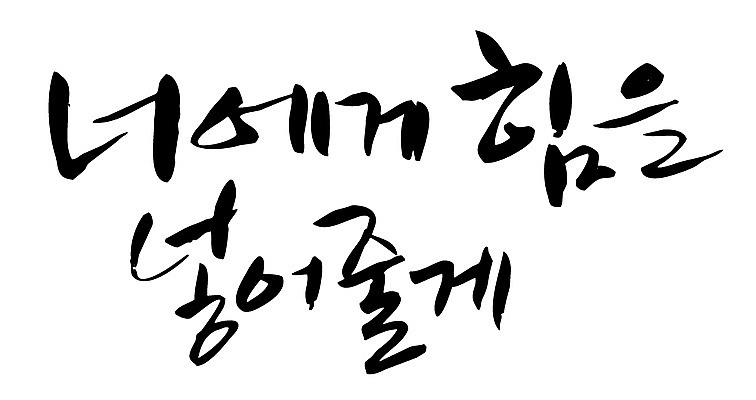 너에게 힘을
넣어줄게